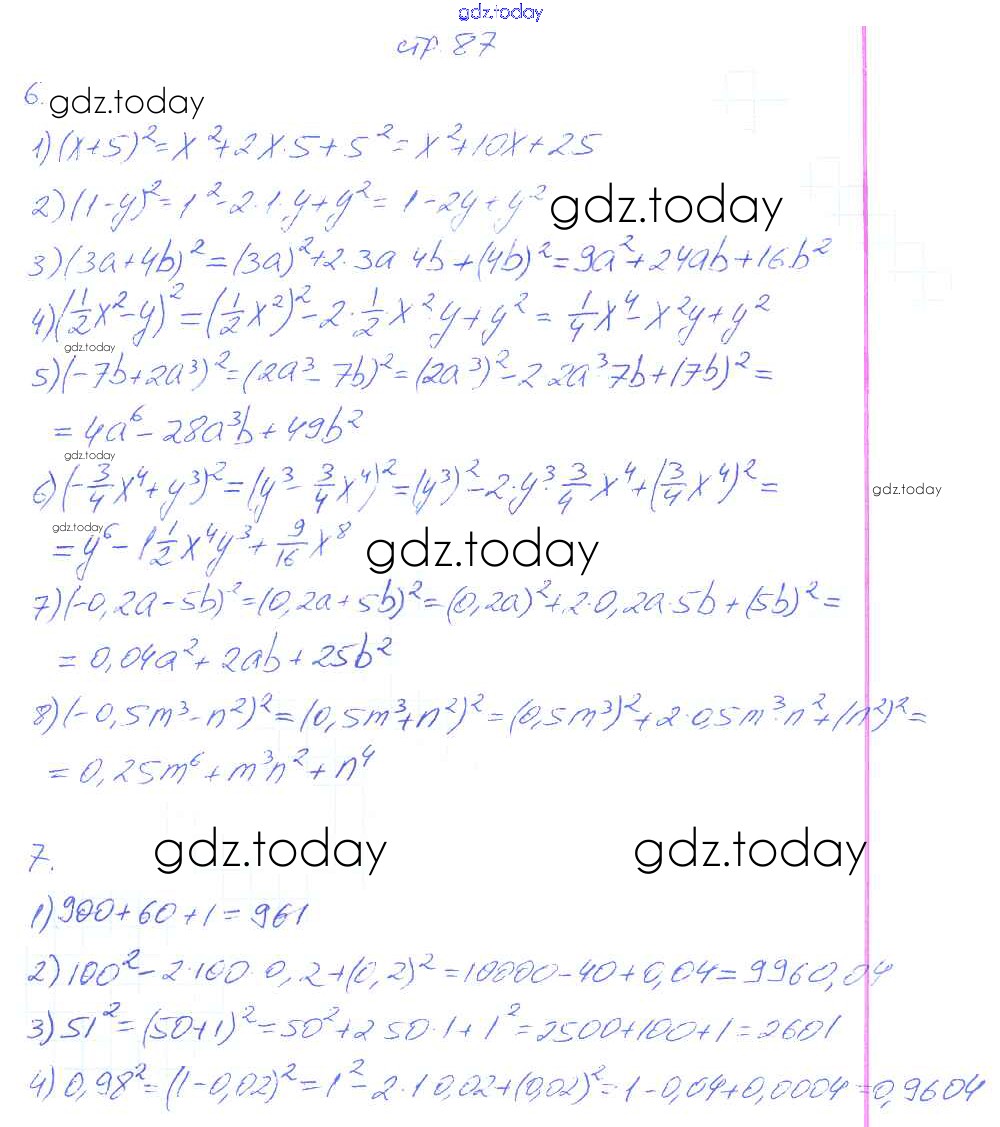 gdz.today
стр. 87
6. gdz.today
1) (x+5)²=x²+2x·5+5²=x²+10x+25
2) (1-y)²=1²-2·1·y+y²=1-2y+y² gdz.today
3) (3a+4b)²=(3a)²+2·3a 4b+(4b)²=9a²+24ab+16b²
4) (1/2x²-y)²=(1/2x²)²-2·1/2x²y+y²=1/4x⁴-x²y+y²
gdz.today
5) (-7b+2a³)²=(2a³-7b)²=(2a³)²-2 2a³·7b+(7b)²=
=4a⁶-28a³b+49b²
gdz.today
6) (-3/4x⁴+y³)²=(y³-3/4x⁴)²=(y³)²-2·y³·3/4x⁴+(3/4x⁴)²=
gdz.today
gdz.today
=y⁶-1 1/2x⁴y³+9/16x⁸ gdz.today
7) (-0,2a-5b)²=(0,2a+5b)²=(0,2a)²+2·0,2a·5b+(5b)²=
=0,04a²+2ab+25b²
8) (-0,5m³-n²)²=(0,5m³+n²)²=(0,5m³)²+2·0,5m³·n²+(n²)²=
=0,25m⁶+m³n²+n⁴
7. gdz.today gdz.today
1) 900+60+1=961
2) 100²-2·100·0,2+(0,2)²=10000-40+0,04=9960,04
3) 51²=(50+1)²=50²+2 50·1+1²=2500+100+1=2601
4) 0,98²=(1-0,02)²=1²-2·1 0,02+(0,02)²=1-0,04+0,0004=0,9604